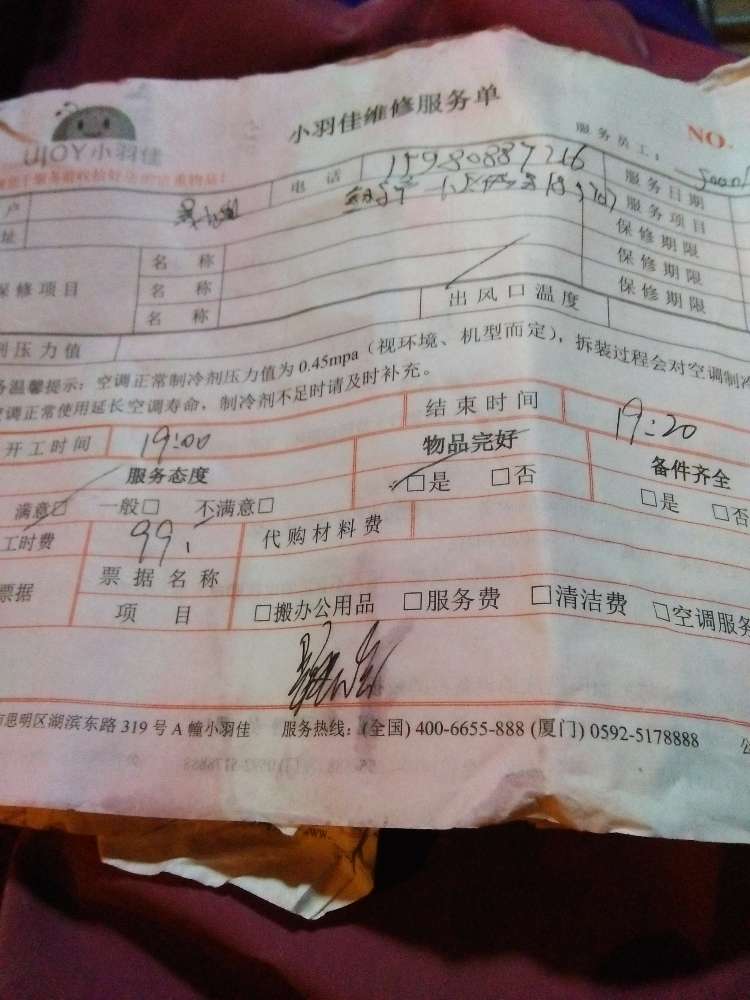 小羽佳维修服务单
UJOY小羽佳
服务员工：
NO.
电话 15980887216 服务日期
户
址 服务项目
保修项目 名称 保修期限
名称 保修期限
名称 保修期限
剂压力值 出风口温度
温馨提示：空调正常制冷剂压力值为 0.45mpa（视环境、机型而定），拆装过程会对空调制冷
空调正常使用延长空调寿命，制冷剂不足时请及时补充。
开工时间 19:00 结束时间 19:20
服务态度 物品完好 备件齐全
满意□ 一般□ 不满意□ □是 □否 □是 □否
工时费 99. 代购材料费
票据 票据名称
项目 □搬办公用品 □服务费 □清洁费 □空调服务
市思明区湖滨东路 319 号 A 幢小羽佳 服务热线：(全国) 400-6655-888 (厦门) 0592-5178888